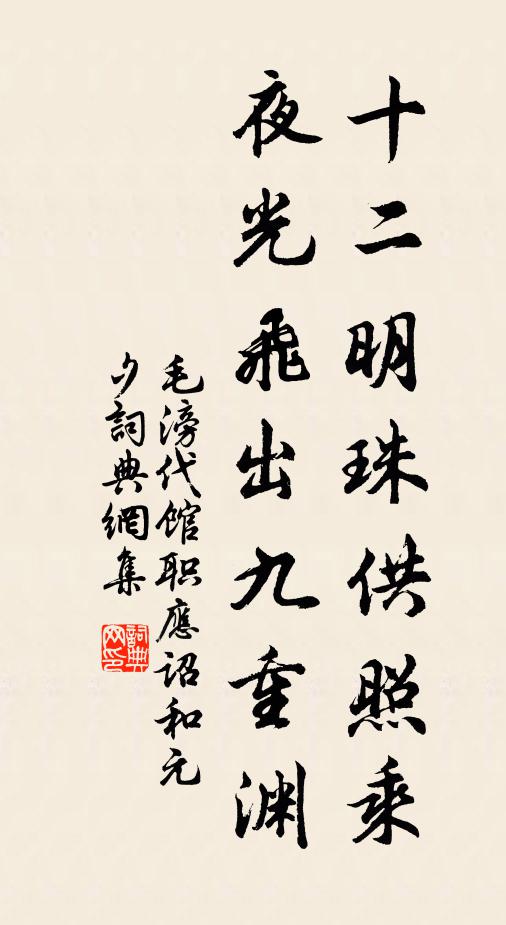 十二明珠供照乘
夜光飛出九重渊
毛滂代馆职應詔和元
夕詞典網集
詞典
网印